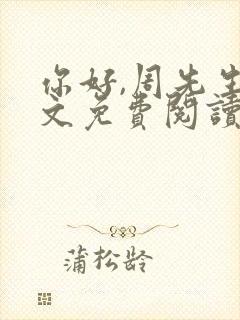 你好,周先生
文免费阅读
蒲松龄